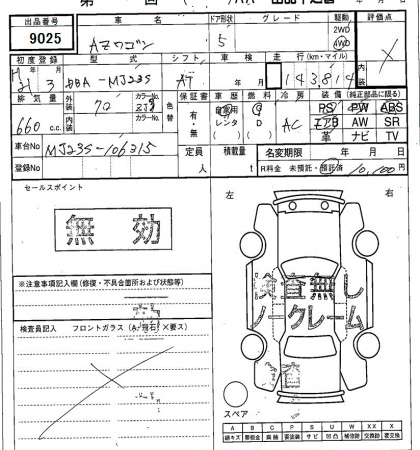 出品番号 車名 ドア形状 グレード 駆動 評価点
9025 AZワゴン 5 2WD 4WD X
初度登録 型式 シフト 車検 走行(km・マイル) 内
H21年3月 DBA-MJ23S AT 年 月 143,814 外
排気量 外装 カラーNo. 色替 保証書 車歴 燃料 冷房 装備(純正部品に限る)
660c.c. 内装 カラーNo. 有・無 自家用 レンタ G D AC PS PW ABS
エアB AW SR
革 ナビ TV
車台No MJ23S-106215 定員 積載量 名変期限 年 月 日
登録No 人 t R料金 未預託・預託済 10,100円
セールスポイント
無効
左 右
※注意事項記入欄(修復・不具合箇所および状態等)
検査員記入 フロントガラス(A・飛石・X要ス)
検査無し
ノークレーム
スペア
A B C P S U W XX X
線キズ 要板金 腐蝕 要塗装 サビ 凹凸 補修跡 交換跡 要交換